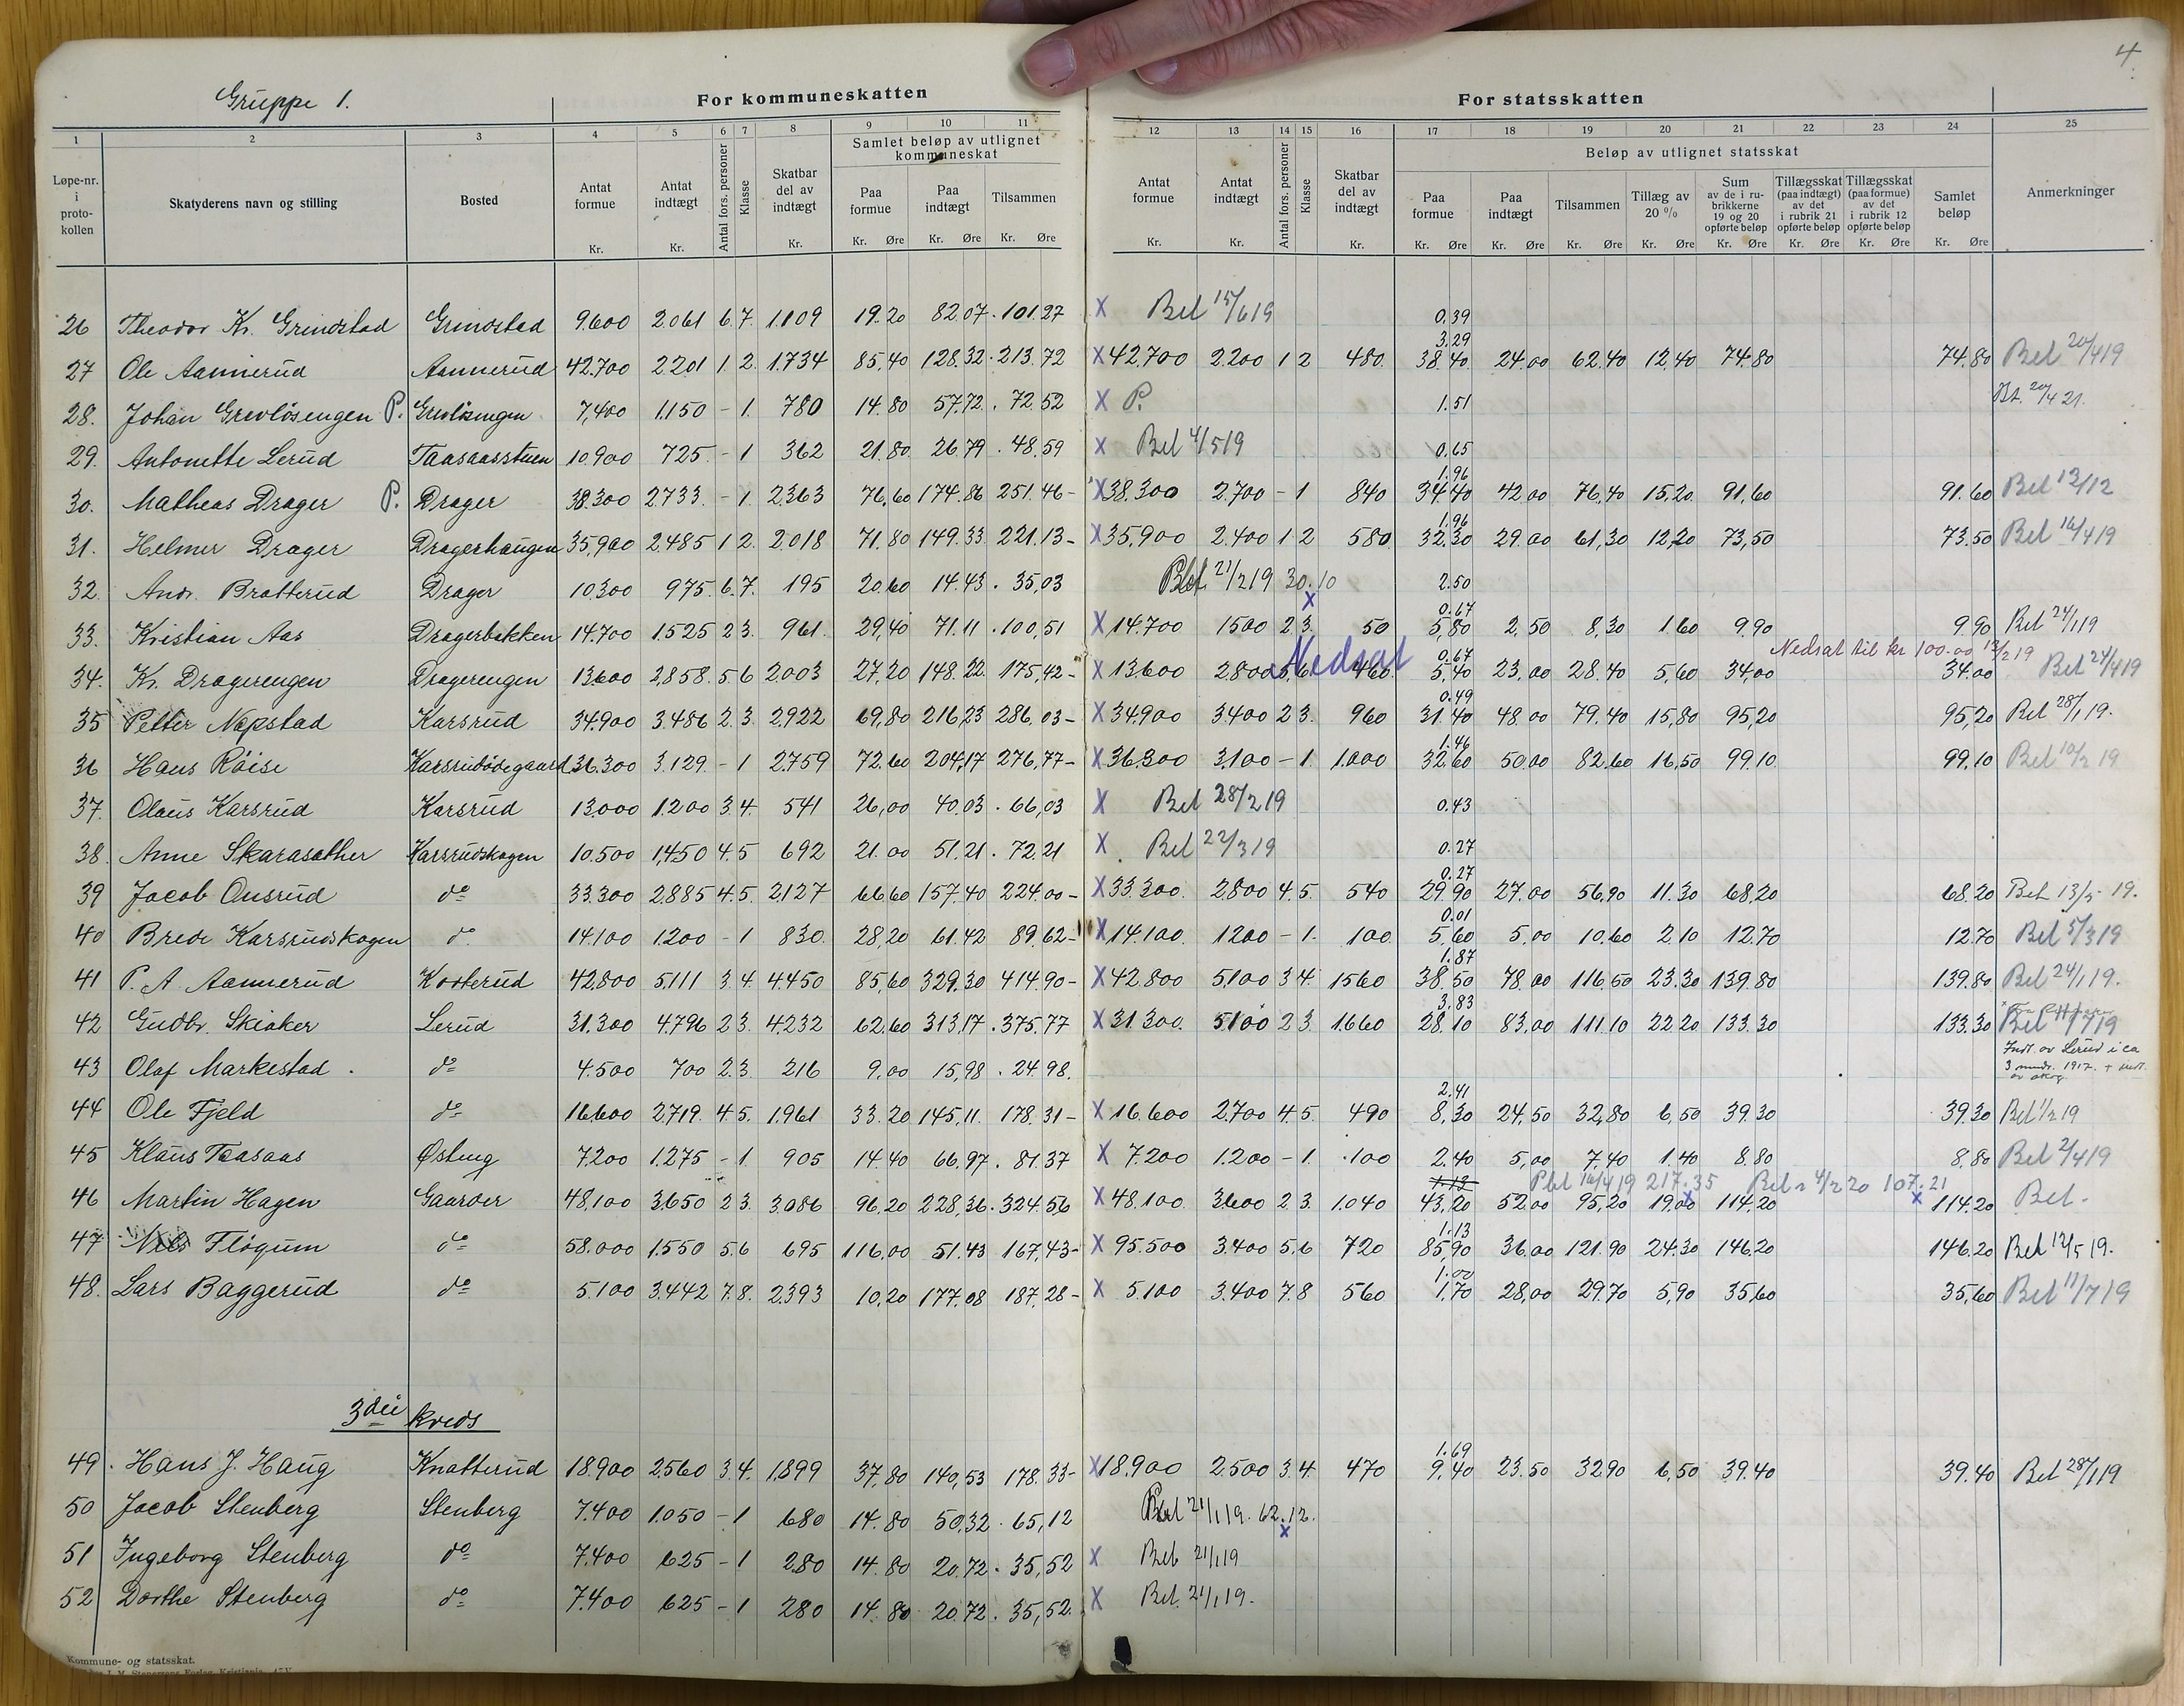 4
Gruppe 1.
For kommuneskatten
For statsskatten
1 2 3 4 5 6 7 8 9 10 11 12 13 14 15 16 17 18 19 20 21 22 23 24 25
Løpe-nr. i proto-kollen
Skatyderens navn og stilling
Bosted
Antat formue Kr.
Antat indtægt Kr.
Antal fors. personer
Klasse
Skatbar del av indtægt Kr.
Samlet beløp av utlignet kommuneskat
Paa formue Kr. Øre
Paa indtægt Kr. Øre
Tilsammen Kr. Øre
Antat formue Kr.
Antat indtægt Kr.
Antal fors. personer
Klasse
Skatbar del av indtægt Kr.
Beløp av utlignet statsskat
Paa formue Kr. Øre
Paa indtægt Kr. Øre
Tilsammen Kr. Øre
Tillæg av 20 % Kr. Øre
Sum av de i ru-brikkerne 19 og 20 opførte beløp Kr. Øre
Tillægsskat (paa indtægt) av det i rubrik 21 opførte beløp Kr. Øre
Tillægsskat (paa formue) av det i rubrik 12 opførte beløp Kr. Øre
Samlet beløp Kr. Øre
Anmerkninger
26 Theodor Kr. Grindstad Grindstad 9.600 2.061 6.7. 1.109 19.20 82.07. 101.27 X Bet 15/6 19 0.39
3.29
27 Ole Aannerud Aannerud 42.700 2201 1.2. 1.734 85,40 128.32. 213.72 X 42.700 2.200 1 2 480. 38.40 24.00 62.40 12,40 74.80 74.80 Bet 20/4 19
28. Johan Grevlösengen P. Grevlösengen 7,400 1.150 - 1. 780 14.80 57.72. 72.52 X P. 1.51 Bt. 20/4 21.
29. Antonette Lerud Taasaasstuen 10.900 725. - 1 362 21.80 26.79. 48.59 X Bet 4/5 19 0.65
1.96
30. Matheas Drager P. Drager 38.300 2.733. - 1. 2.363 76,60 174.86 251.46 - X 38.300 2.700 - 1 840 34.40 42.00 76,40 15,20 91,60 91.60 Bet 12/12
1.96
31. Helmer Drager Dragerhaugen 35,900 2.485 1 2. 2.018 71.80 149.33. 221.13 - X 35.900 2.400 1 2 580 32.30 29.00 61,30 12,20 73,50 73.50 Bet 16/4 19
32. Andr. Bratterud Drager 10.300 975. 6.7. 195 20.60 14.43. 35,03 21/2 19 30.10 X 2.50
0.67
33. Kristian Aas Dragerbakken 14.700 1.525 2 3. 961. 29,40 71.11. 100,51 X 14.700 1500 2.3. 50 5,80 2,50 8,30 1.60 9.90 9.90 Bet 24/1 19
Nedsat Nedsat til kr 100.00 12/2 19
0.67
34. Kr. Dragerengen Dragerengen 13.600 2,858. 5.6 2.003 27,20 148.22. 175,42 - X 13.600 2800 5,6 460. 5,40 23.00 28.40 5,60 34,00 34.00 Bet 24/4 19
0.49
35 Petter Nøpstad Karsrud 34.900 3.486 2.3. 2.922 69,80 216,23 286,03 - X 34.900 3.400 2 3. 960 31.40 48.00 79.40 15,80 95,20 95,20 Bet 28/1 19.
1.46
36 Hans Röise Karsrudödegaard 36.300 3.129. - 1 2.759 72.60 204,17 276,77 - X 36.300 3,100 - 1. 1.000 32,60 50.00 82.60 16,50 99.10 99,10 Bet 10/2 19
37. Olaus Karsrud Karsrud 13.000 1.200 3.4. 541 26,00 40.03. 66,03 X Bet 28/2 19 0.43
38. Anne Skarasæther Karsrudskogen 10.500 1,450 4.5 692 21.00 51,21. 72.21 X Bet 22/3 19 0.27
0.27
39 Jacob Onsrud do 33.300 2.885 4.5. 2,127 66.60 157.40 224.00 - X 33.300. 2.800 4.5. 540 29.90 27.00 56,90 11.30 68,20 68.20 Bet 13/5 19.
0.01
40 Brede Karsrudskogen do 14.100 1.200 - 1 830 28,20 61.42 89,62 - X 14.100. 1200 - 1. 100. 5,60 5,00 10.60 2,10 12.70 12.70 Bet 5/3 19
1.87
41 P. A. Aannerud Kosterud 42,800 5.111 3.4. 4.450 85,60 329.30 414.90 - X 42.800 5,100 3 4. 1560 38.50 78.00 116,50 23.30 139.80 139.80 Bet 24/1 19.
3.83
42 Gudbr. Skiaker Lerud 31.300 4.796 2 3. 4.232 62.60 313,17. 375.77 X 31.300. 5100 2 3. 1.660 28.10 83,00 111.10 22.20 133.30 133.30 Bet 11/7 19
43 Olaf Markestad. do 4.500 700 2.3. 216 9.00 15,98. 24.98. Indt. av Lerud i ca 3 mndr. 1917. + indt. av skog
2.41
44 Ole Fjeld do 16.600 2.719. 4 5. 1,961 33.20 145,11. 178.31 - X 16.600 2.700 4.5. 490 8,30 24,50 32,80 6,50 39.30 39.30 Bet 1/2 19
45 Klaus Taasaas Østeng 7.200 1.275 - 1. 905 14.40 66.97. 81.37 X 7.200 1.200 - 1. 100 2,40 5,00 7.40 1.40 8.80 8,80 Bet 2/4 19
1.13 Pbt 16/4 19 217.35 Bet 4/2 20 107.21
46 Martin Hagen Gaarder 48,100 3.650 2 3. 3.086 96.20 228,36. 324.56 X 48.100. 3.600 2 3. 1.040 43,20 52.00 95,20 19,00 114,20 X 114.20 Bet.
1.13
47 Flogum do 58.000 1.550 5.6 695 116.00 51.43 167,43 - X 95.500 3.400 5,6 720 85,90 36,00 121.90 24.30 146,20 146.20 Bet 12/5 19.
1.00
48. Lars Baggerud do 5.100 3.442 7.8. 2.393 10,20 177.08 187.28 - X 5.100 3.400 7.8 560 1,70 28,00 29.70 5,90 35,60 35,60 Bet 11/7 19
3die kreds
1.69
49. Hans J. Haug Knatterud 18.900 2.560 3.4. 1,899 37,80 140,53 178.33 - X 18.900 2.500 3.4 470 9,40 23.50 32.90 6,50 39.40 39.40 Bet 28/1 19
50 Jacob Stenberg Stenberg 7.400 1.050 - 1 680 14.80 50,32. 65,12 21/1 19. 62.12. X
51 Ingeborg Stenberg do 7.400 625 - 1 280 14.80 20.72. 35,52 X Bet 21/1 19
52 Dorthe Stenberg do 7.400 625 - 1 280 14.80 20.72. 35,52. X Bet. 21/1 19.
Kommune- og statsskat.